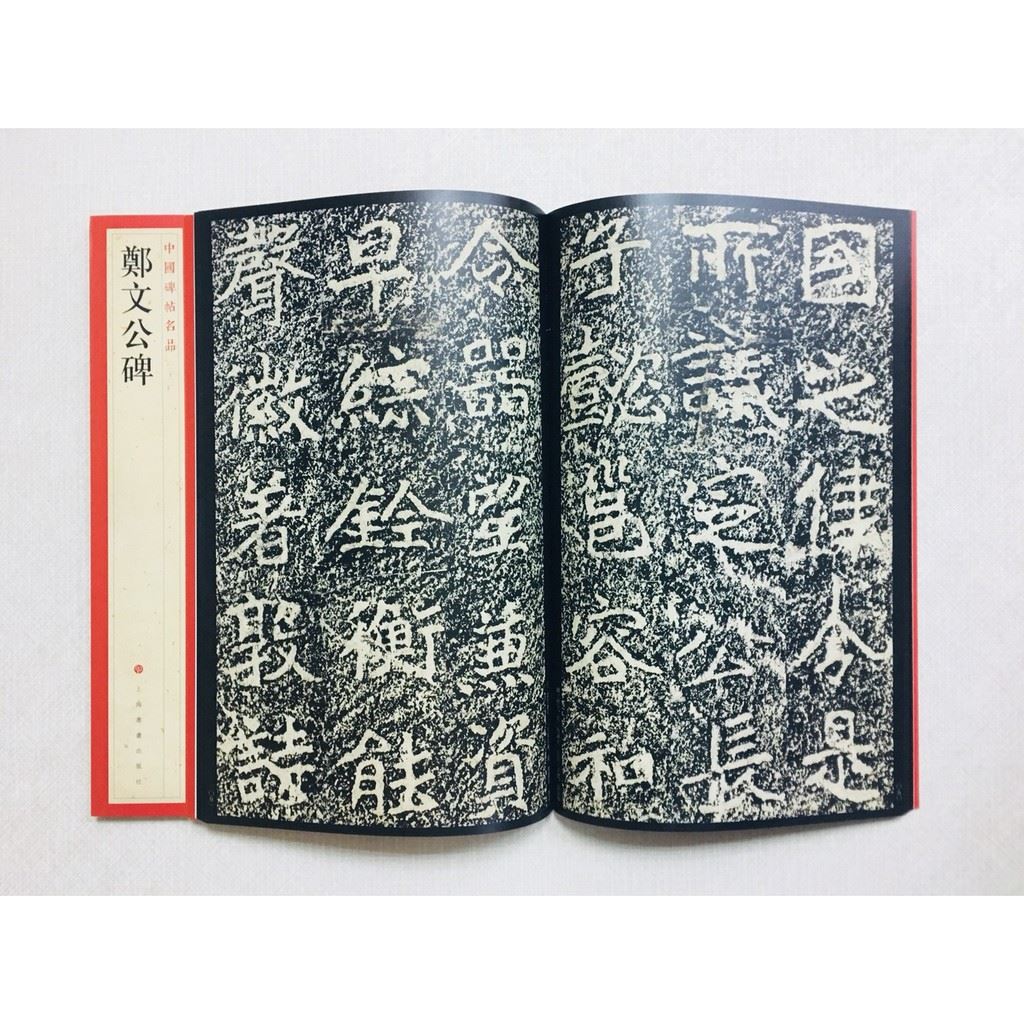 中國碑帖名品
鄭文公碑
上海書畫出版社
國之律令是
所議定公長
子懿邕容和
令器望兼資
早綜銓衡能
聲徽著敦詩